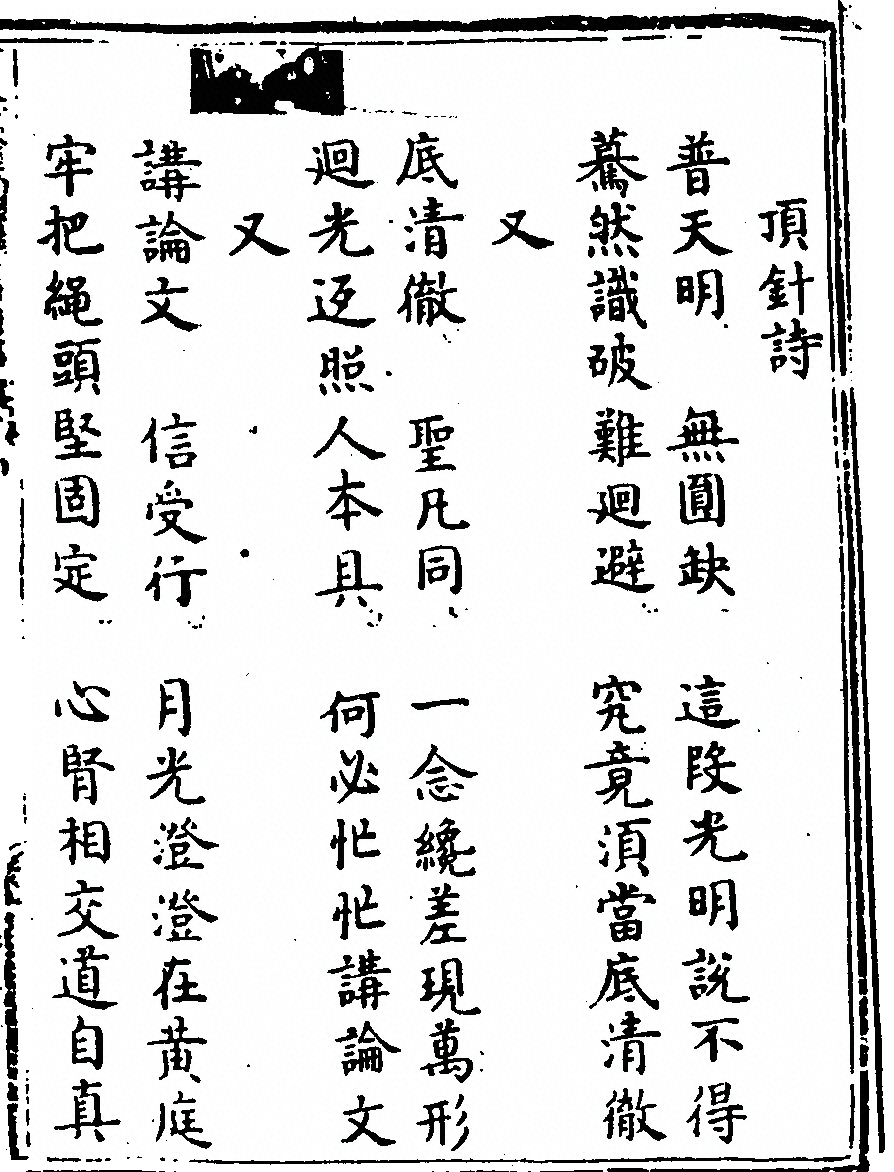 頂針詩
普天明 無圓缺 這段光明說不得
驀然識破難迴避 究竟須當底清徹
又
底清徹 聖凡同 一念纔差現萬形
迴光返照人本具 何必忙忙講論文
又
講論文 信受行 月光澄澄在黄庭
牢把繩頭堅固定 心腎相交道自真